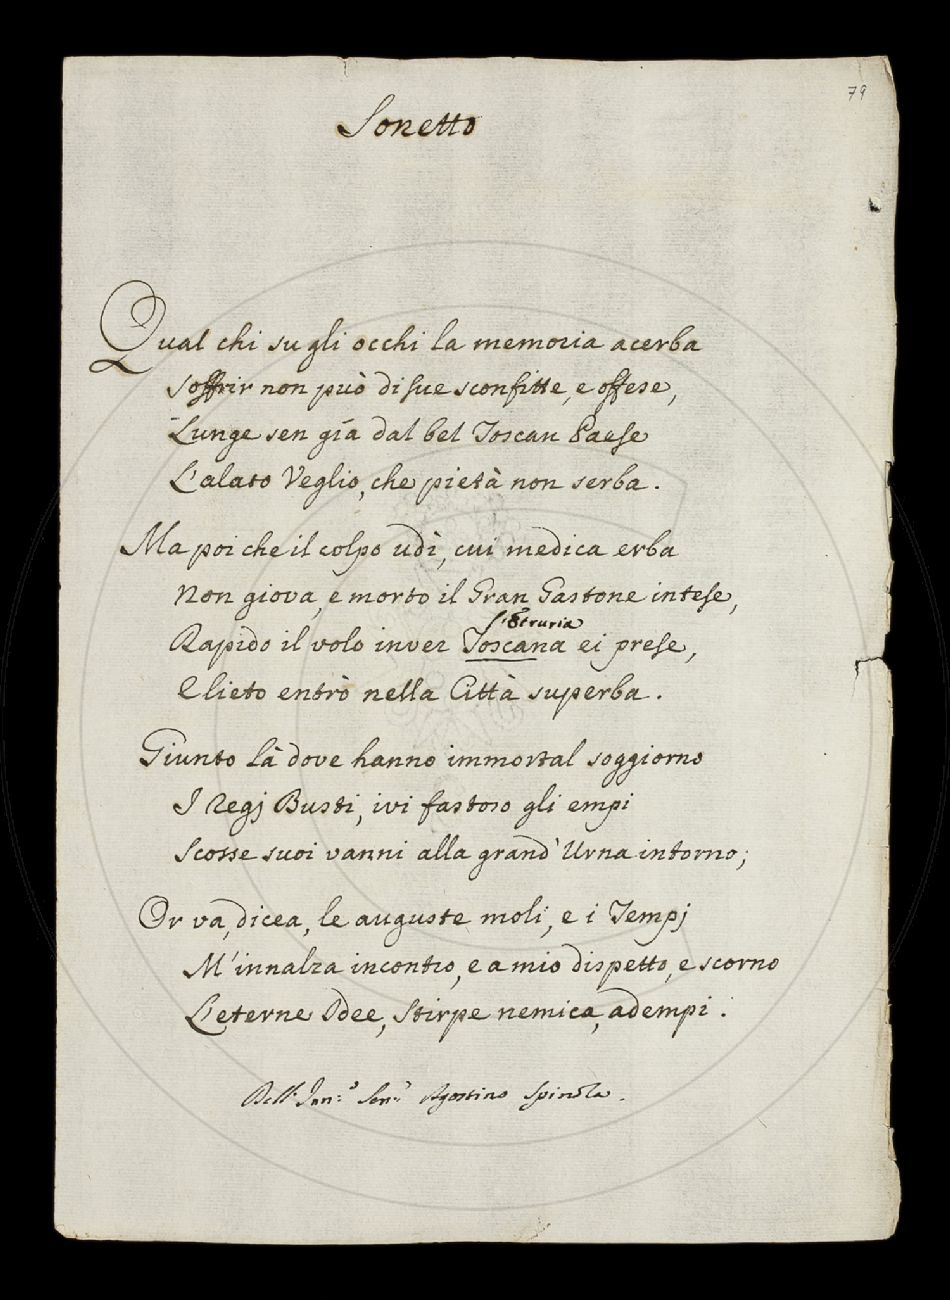 79
Sonetto
Qual chi su gli occhi la memoria acerba
soffrir non può di sue sconfitte, e offese,
Lunge sen gía dal bel Toscan Paese
L'alato Veglio, che pietà non serba.
Ma poi che il colpo udì, cui medica erba
Non giova, e morto il Gran Gastone intese,
l'Etruria
Rapido il volo inver Toscana ei prese,
E lieto entrò nella Città superba.
Giunto là dove hanno immortal soggiorno
I Regj Busti, ivi fastoso gli empi
Scosse suoi vanni alla grand'Urna intorno;
Or va, dicea, le auguste moli, e i Tempj
M'innalza incontro, e a mio dispetto, e scorno
L'eterne Idee, Stirpe nemica, adempi.
Agostino Spinola.